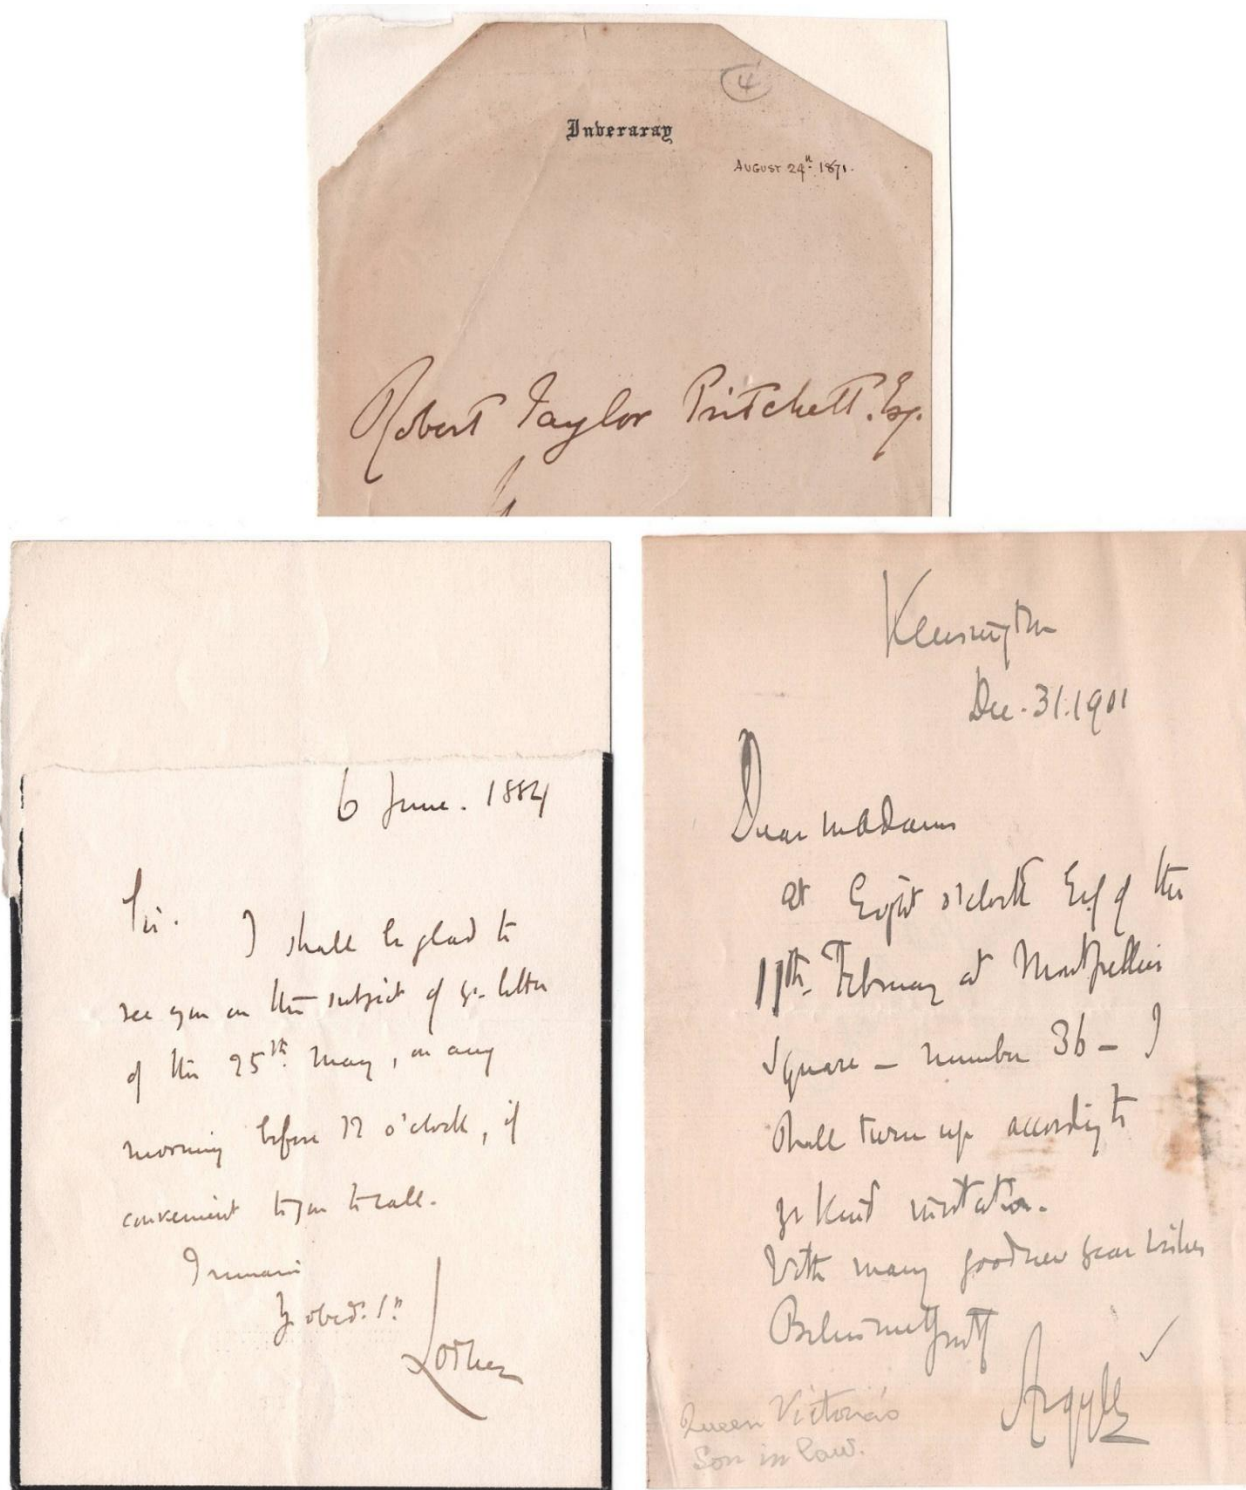 4
Inveraray
AUGUST 24th 1871.
Robert Taylor Pritchett. Esq.
6 June. 1884
Sir. I shall be glad to
see you on the subject of yr. letter
of the 25th May, on any
morning before 12 o'clock, if
convenient to you to call.
I remain
yr obed. St.
Lothian
Kensington
Dec. 31. 1901
Dear Madam
at Eight o'clock of the
11th. February at Montpellier
Square – number 36 – I
shall turn up according to
yr kind invitation.
With many good new year wishes
Believe me
Argyll
Queen Victoria's
Son in law.